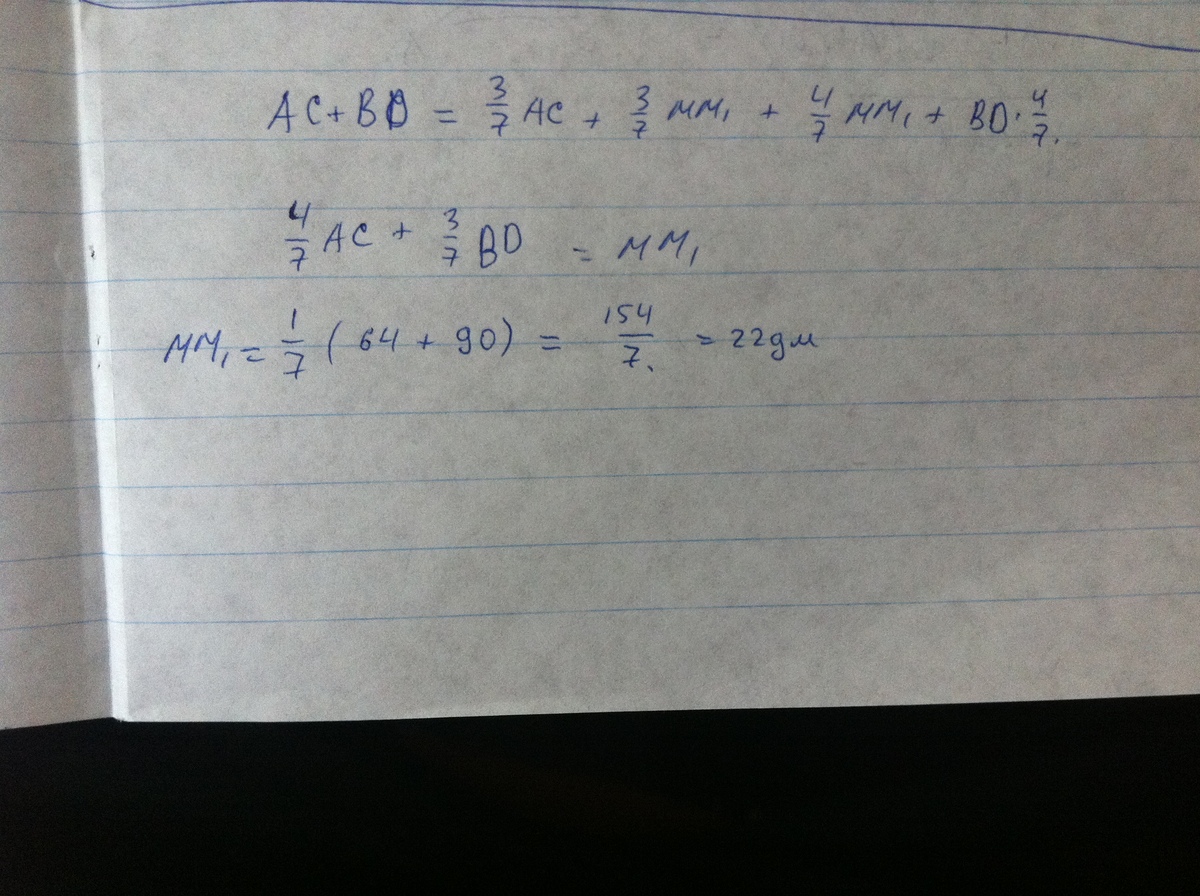 AC + BD = 3/7 AC + 3/7 MM₁ + 4/7 MM₁ + BD · 4/7.
4/7 AC + 3/7 BD = MM₁
MM₁ = 1/7 (64 + 90) = 154/7. = 22дм